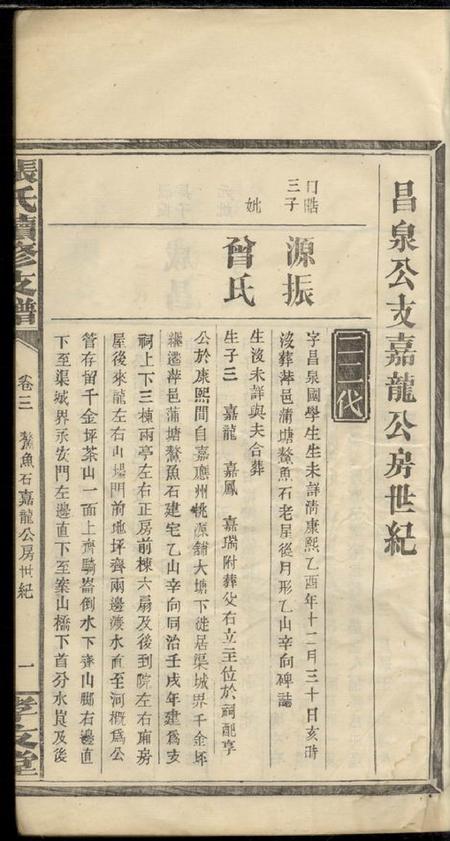 昌泉公支嘉龍公房世紀
二二代
三子
源振
妣
曾氏
字昌泉國學生生未詳清康熙乙酉年十二月三十日亥時
沒葬萍邑蒲塘鰲魚石老屋後月形乙山辛向碑誌
生沒未詳與夫合葬
生子三 嘉龍 嘉鳳 嘉瑞附葬父右立主位於祠配享
公於康熙間自嘉應州桃源舖大塘下徙居渠城界千金坪
繼遷萍邑蒲塘鰲魚石建宅乙山辛向同治壬戌年建爲支
祠上下三棟兩亭左右正房前棟六扇及後到院左右廂房
屋後來龍左右山塲門前地坪齊兩邊渡水直至河概爲公
管存留千金坪茶山一面上齊騎崙倒水下齊山脚右邊直
下至渠城界永安門左邊直下至案山橋下首分水崀及後
張氏續修支譜
卷三
鰲魚石嘉龍公房世紀
一
孝友堂